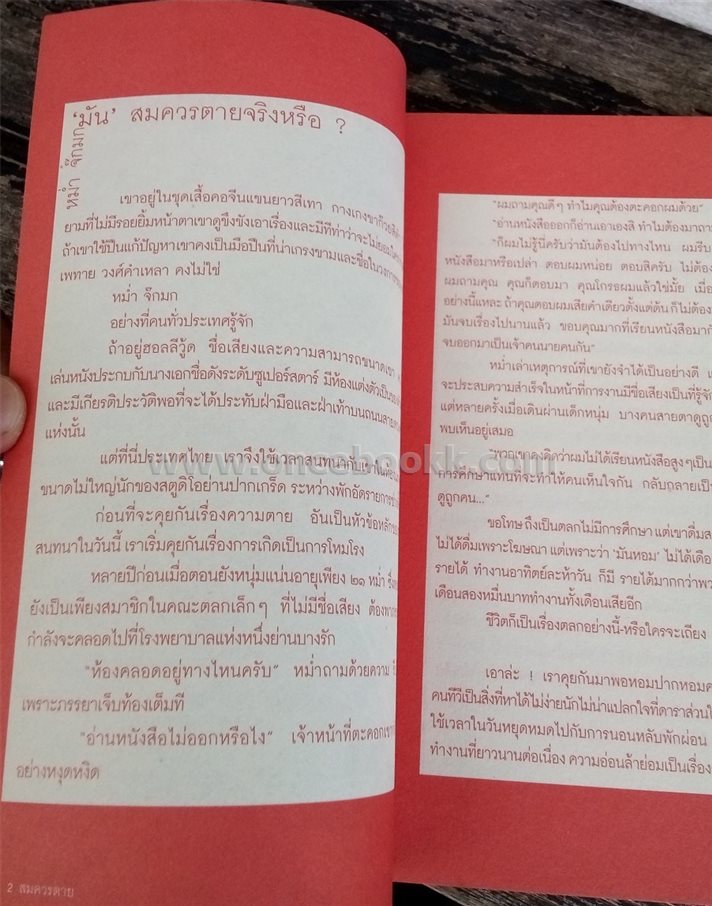 'มัน' สมควรตายจริงหรือ ?
หม่ำ จ๊กมก
เขาอยู่ในชุดเสื้อคอจีนแขนยาวสีเทา กางเกงขาก๊วย
ยามที่ไม่มีรอยยิ้มหน้าตาเขาดูขึงขังเอาเรื่องและมีทีท่าว่าจะไม่ยอม
ถ้าเขาใช้ปืนแก้ปัญหาเขาคงเป็นมือปืนที่น่าเกรงขามและชื่อในวงการ
เพทาย วงศ์คำเหลา คงไม่ใช่
หม่ำ จ๊กมก
อย่างที่คนทั่วประเทศรู้จัก
ถ้าอยู่ฮอลลีวู้ด ชื่อเสียงและความสามารถขนาดเขา
เล่นหนังประกบกับนางเอกชื่อดังระดับซูเปอร์สตาร์ มีห้องแต่งตัวเป็น
และมีเกียรติประวัติพอที่จะได้ประทับฝ่ามือและฝ่าเท้าบนถนนสาย
แห่งนั้น
แต่ที่นี่ประเทศไทย เราจึงใช้เวลาสนทนากับเขา
ขนาดไม่ใหญ่นักของสตูดิโอย่านปากเกร็ด ระหว่างพักอัดรายการ
ก่อนที่จะคุยกันเรื่องความตาย อันเป็นหัวข้อหลัก
สนทนาในวันนี้ เราเริ่มคุยกันเรื่องการเกิดเป็นการโหมโรง
หลายปีก่อนเมื่อตอนยังหนุ่มแน่นอายุเพียง ๒๑ หม่ำ
ยังเป็นเพียงสมาชิกในคณะตลกเล็กๆ ที่ไม่มีชื่อเสียง ต้อง
กำลังจะคลอดไปที่โรงพยาบาลแห่งหนึ่งย่านบางรัก
"ห้องคลอดอยู่ทางไหนครับ" หม่ำถามด้วยความ
เพราะภรรยาเจ็บท้องเต็มที
"อ่านหนังสือไม่ออกหรือไง" เจ้าหน้าที่ตะคอก
อย่างหงุดหงิด
2 สมควรตาย
"ผมถามคุณดีๆ ทำไมคุณต้องตะคอกผมด้วย"
"อ่านหนังสือออกก็อ่านเอาเองสิ ทำไมต้องมาถาม
"ก็ผมไม่รู้นี่ครับว่ามันต้องไปทางไหน ผมรีบ
หนังสือมาหรือเปล่า ตอบผมหน่อย ตอบสิครับ ไม่ต้อง
ผมถามคุณ คุณก็ตอบมา คุณโกรธผมแล้วใช่มั้ย เมื่อ
อย่างนี้แหละ ถ้าคุณตอบผมเสียคำเดียวตั้งแต่ต้น ก็ไม่ต้อง
มันจบเรื่องไปนานแล้ว ขอบคุณมากที่เรียนหนังสือมา
จบออกมาเป็นเจ้าคนนายคนกัน"
หม่ำเล่าเหตุการณ์ที่เขายังจำได้เป็นอย่างดี
จะประสบความสำเร็จในหน้าที่การงานมีชื่อเสียงเป็นที่รู้จัก
แต่หลายครั้งเมื่อเดินผ่านเด็กหนุ่ม บางคนสายตาดูถูก
พบเห็นอยู่เสมอ
"พวกเขาคงคิดว่าผมไม่ได้เรียนหนังสือสูงๆ เป็น
การศึกษาแทนที่จะทำให้คนเห็นใจกัน กลับกลายเป็น
ดูถูกคน..."
ขอโทษ ถึงเป็นตลกไม่มีการศึกษา แต่เขาดื่ม
ไม่ได้ดื่มเพราะโฆษณา แต่เพราะว่า 'มันหอม' ไม่ได้
รายได้ ทำงานอาทิตย์ละห้าวัน ก็มี รายได้มากกว่า
เดือนสองหมื่นบาททำงานทั้งเดือนเสียอีก
ชีวิตก็เป็นเรื่องตลกอย่างนี้-หรือใครจะเถียง
เอาล่ะ ! เราคุยกันมาพอหอมปากหอม
คนทีวีเป็นสิ่งที่หาได้ไม่ง่ายนักไม่น่าแปลกใจที่ดาราส่วน
ใช้เวลาในวันหยุดหมดไปกับการนอนหลับพักผ่อน
ทำงานที่ยาวนานต่อเนื่อง ความอ่อนล้าย่อมเป็นเรื่อง
www.onceabookk.com